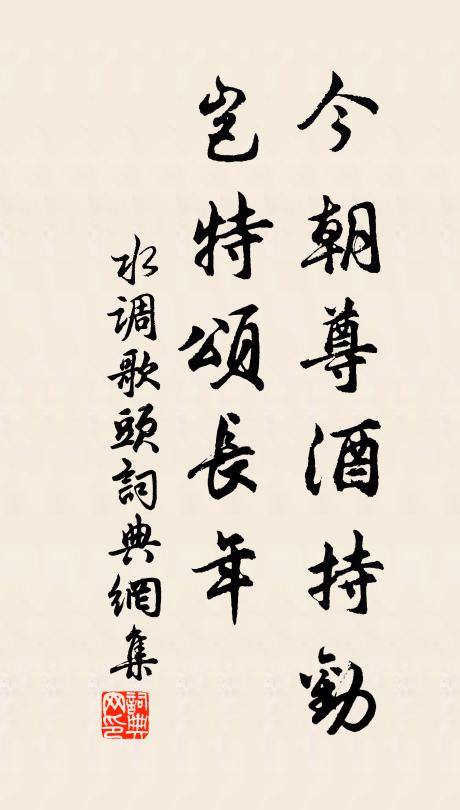 今朝尊酒持勸
豈特頌長年
水调歌頭詞典網集
詞典网印